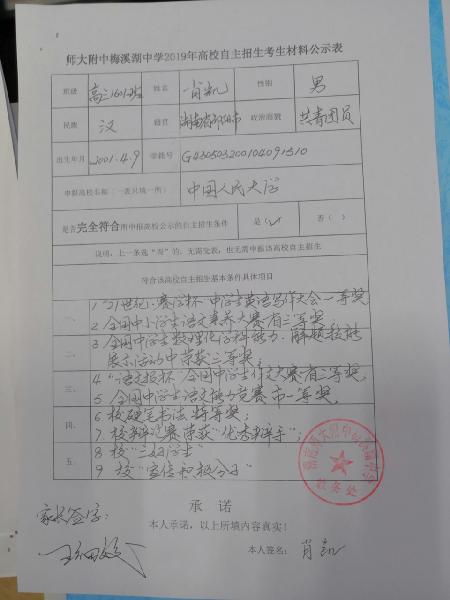 师大附中梅溪湖中学2019年高校自主招生考生材料公示表
班级 高三1601班 姓名 肖凯 性别 男
民族 汉 籍贯 湖南省邵阳市 政治面貌 共青团员
出生年月 2001.4.9 学籍号 G430503200104091510
申报高校名称（一表只填一所） 中国人民大学
是否完全符合所申报高校公示的自主招生条件 是(✓) 否( )
说明：上一条选“否”的，无需交表，也无需申报该高校自主招生
符合该高校自主招生基本条件具体项目
一、 1 “21世纪·赛学杯”中学生英语写作大会一等奖
2. 全国中小学生语文素养大赛省三等奖
二、 3. 全国中学生数理化学科能力 解题技能
展示活动中荣获三等奖
三、 4 “语文报杯”全国中学生作文大赛省二等奖
5. 全国中学生语文能力竞赛市一等奖
四、 6 校硬笔书法特等奖
7. 校辩论赛荣获“优秀辩手”
五、 8 校“三好学生”
9. 校“宣传积极分子”
教务处
承 诺
家长签字：
本人承诺，以上所填内容真实！
本人签名： 肖凯